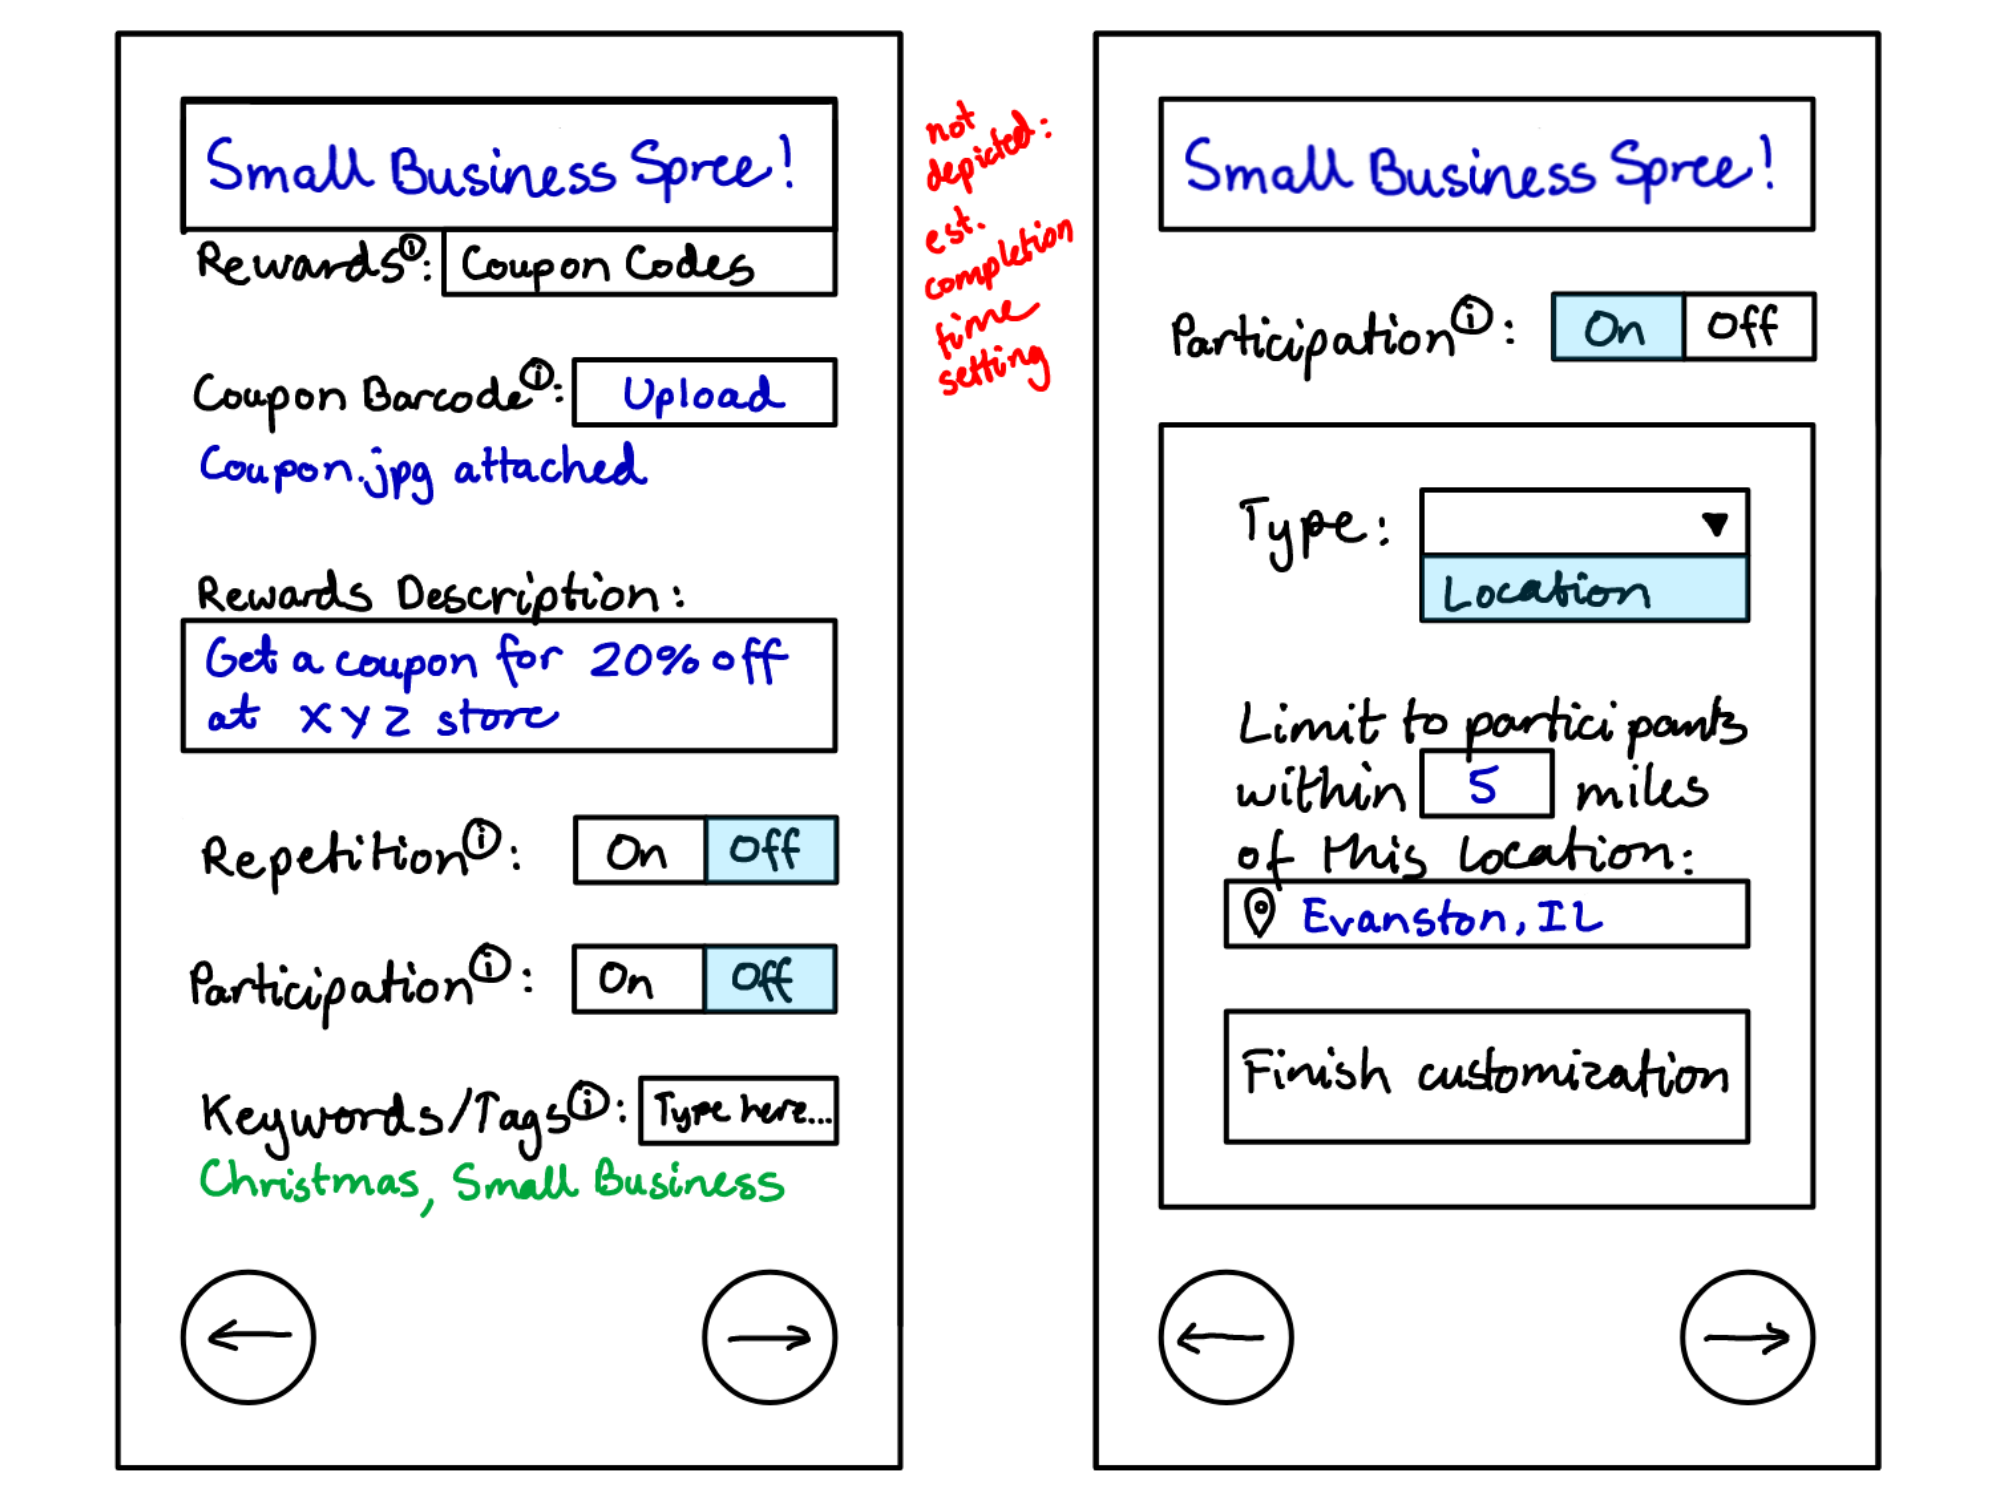 Small Business Spree!
Rewards ⓘ: Coupon Codes
Coupon Barcode ⓘ: Upload
Coupon.jpg attached
Rewards Description:
Get a coupon for 20% off
at XYZ store
Repetition ⓘ: On Off
Participation ⓘ: On Off
Keywords/Tags ⓘ: Type here...
Christmas, Small Business
not
depicted:
est.
completion
time
setting
Small Business Spree!
Participation ⓘ: On Off
Type:
Location
Limit to participants
within 5 miles
of this location:
Evanston, IL
Finish customization